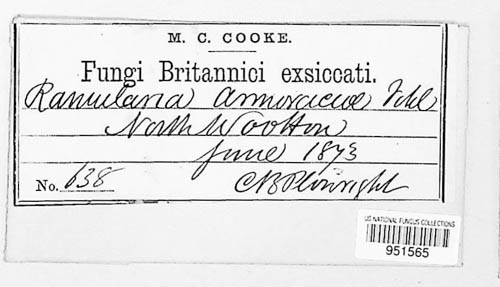 M. C. COOKE.
Fungi Britannici exsiccati.
Ramularia armoraciae Fckl
North Wootton
June 1873
No. 638 C B Plowright
US NATIONAL FUNGUS COLLECTIONS
951565